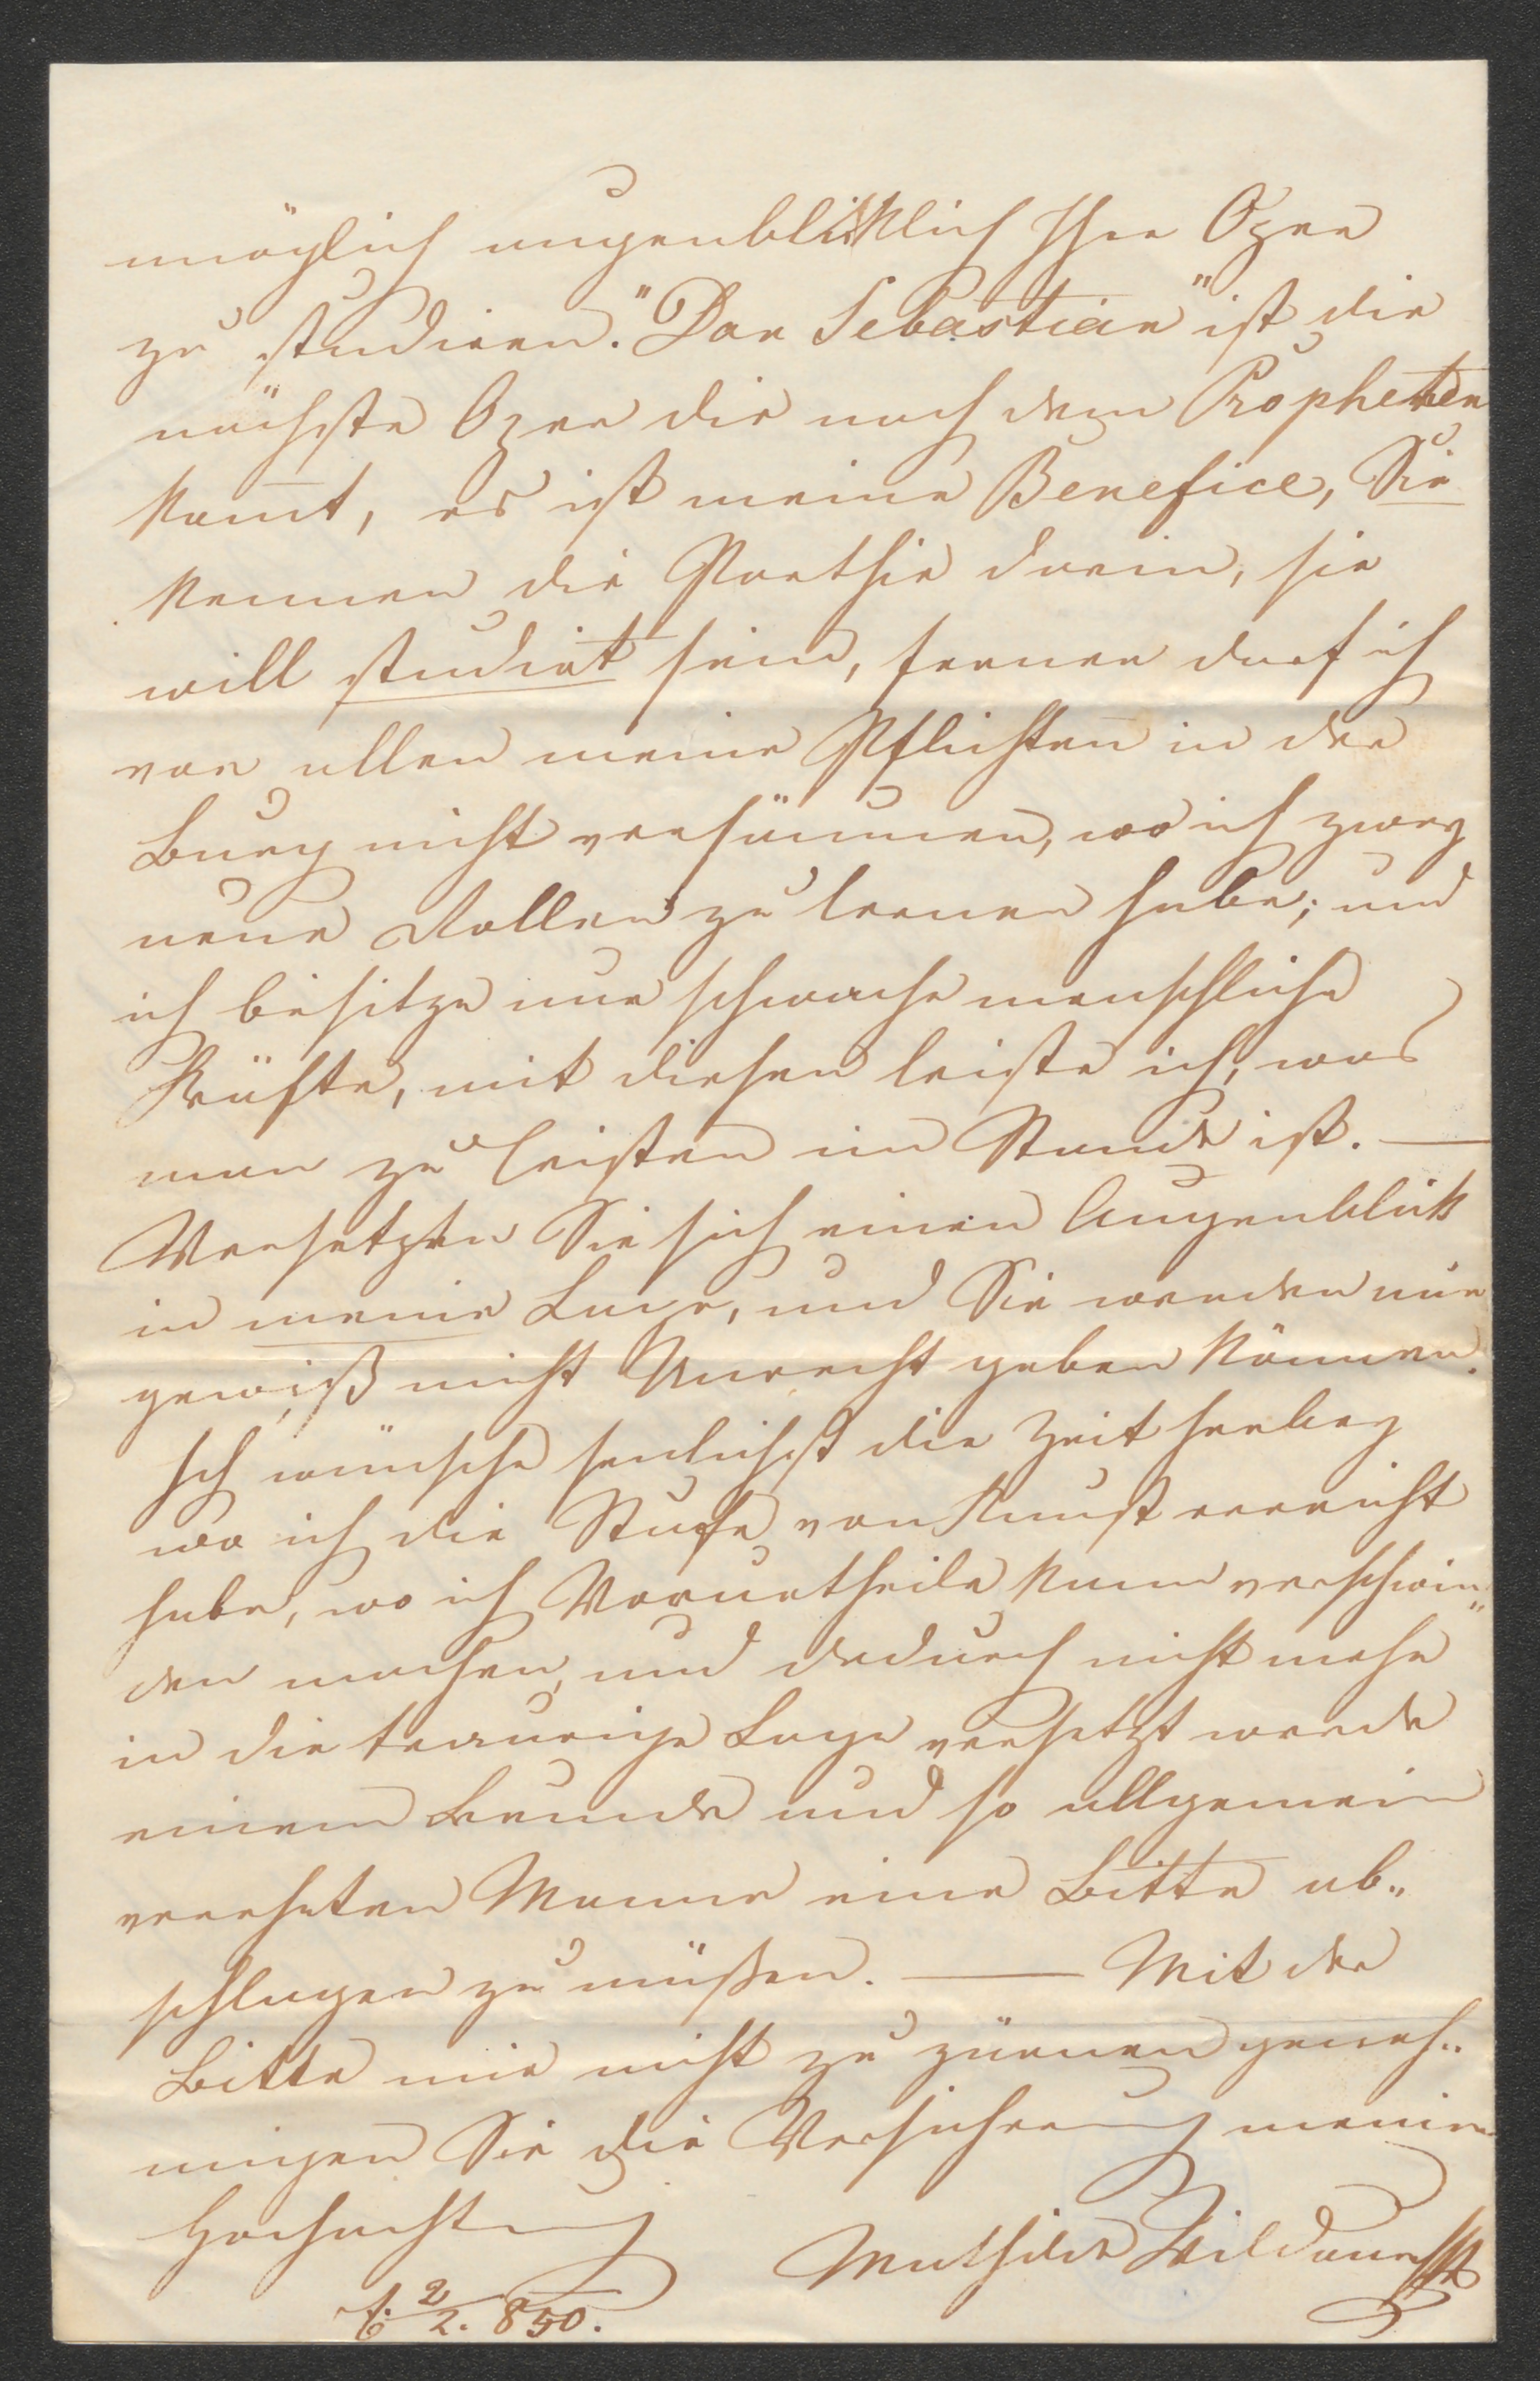 möglich augenblicklich Ihre Oper
zu studieren. "Don Sebastian" ist die
nächste Oper die nach dem Propheten
kom̄t, es ist meine Benefice, Sie
kennen die Parthie darin, sie
will studirt sein, ferner darf ich
vor allen meine Pflichten in der
Burg nicht versäumen, wo ich zwey
neue Rollen zu lernen habe; und
ich besitze nur schwache menschliche
Kräfte, mit diesen leiste ich, was
man zu leisten im Stande ist. —
Versetzen Sie sich einen Augenblick
in meine Lage, und Sie werden mir
gewiß nicht Unrecht geben können.
Ich wünsche sehnlichst die Zeit herbey
wo ich die Stufe von Kunst erreicht
habe, wo ich Vorurtheile kann verschwin„
den machen, und dadurch nicht mehr
in die traurige Lage versetzt werde
einem Freunde und so allgemein
verehrten Manne eine Bitte ab„
schlagen zu müßen. — Mit der
Bitte mir nicht zu zürnen geneh„
migen Sie die Versicherung meiner
Hochachtung
Mathilde Wildauer
2/2. 850.